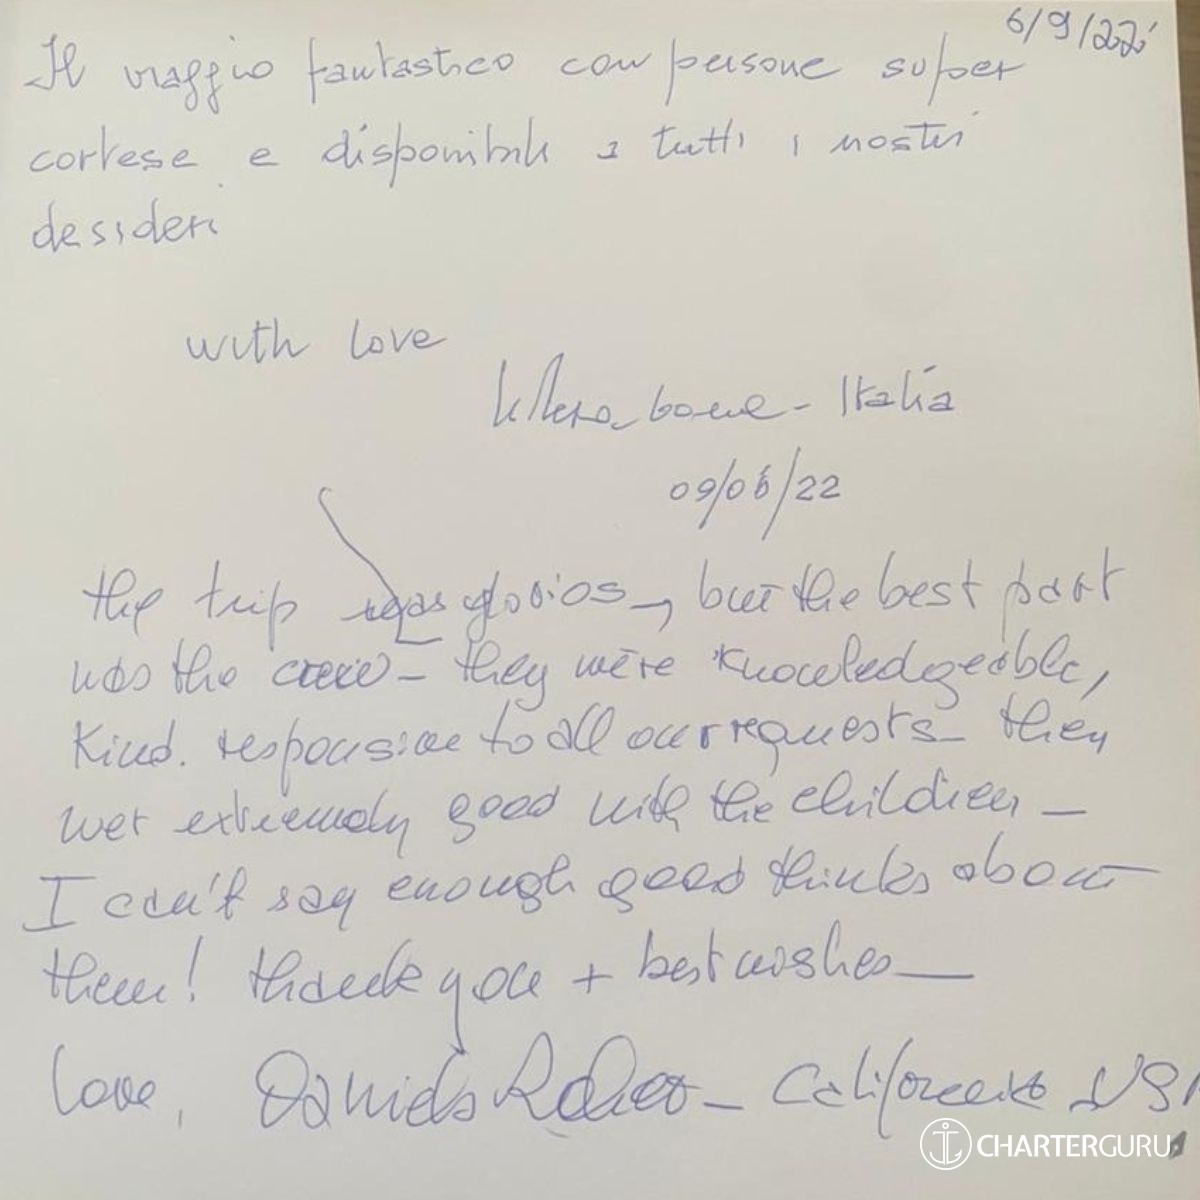 6/9/202
Il viaggio fantastico con persone super
cortese e disponibili a tutti i nostri
desideri
with love
- Italia
09/06/22
the trip was glorios, but the best part
was the crew - they were knowledgeable,
kind. responsive to all our requests - they
wer extremely good with the children -
I can't say enough good thinks about
them! thank you + best wishes -
love, Daniela - California USA
CHARTERGURU